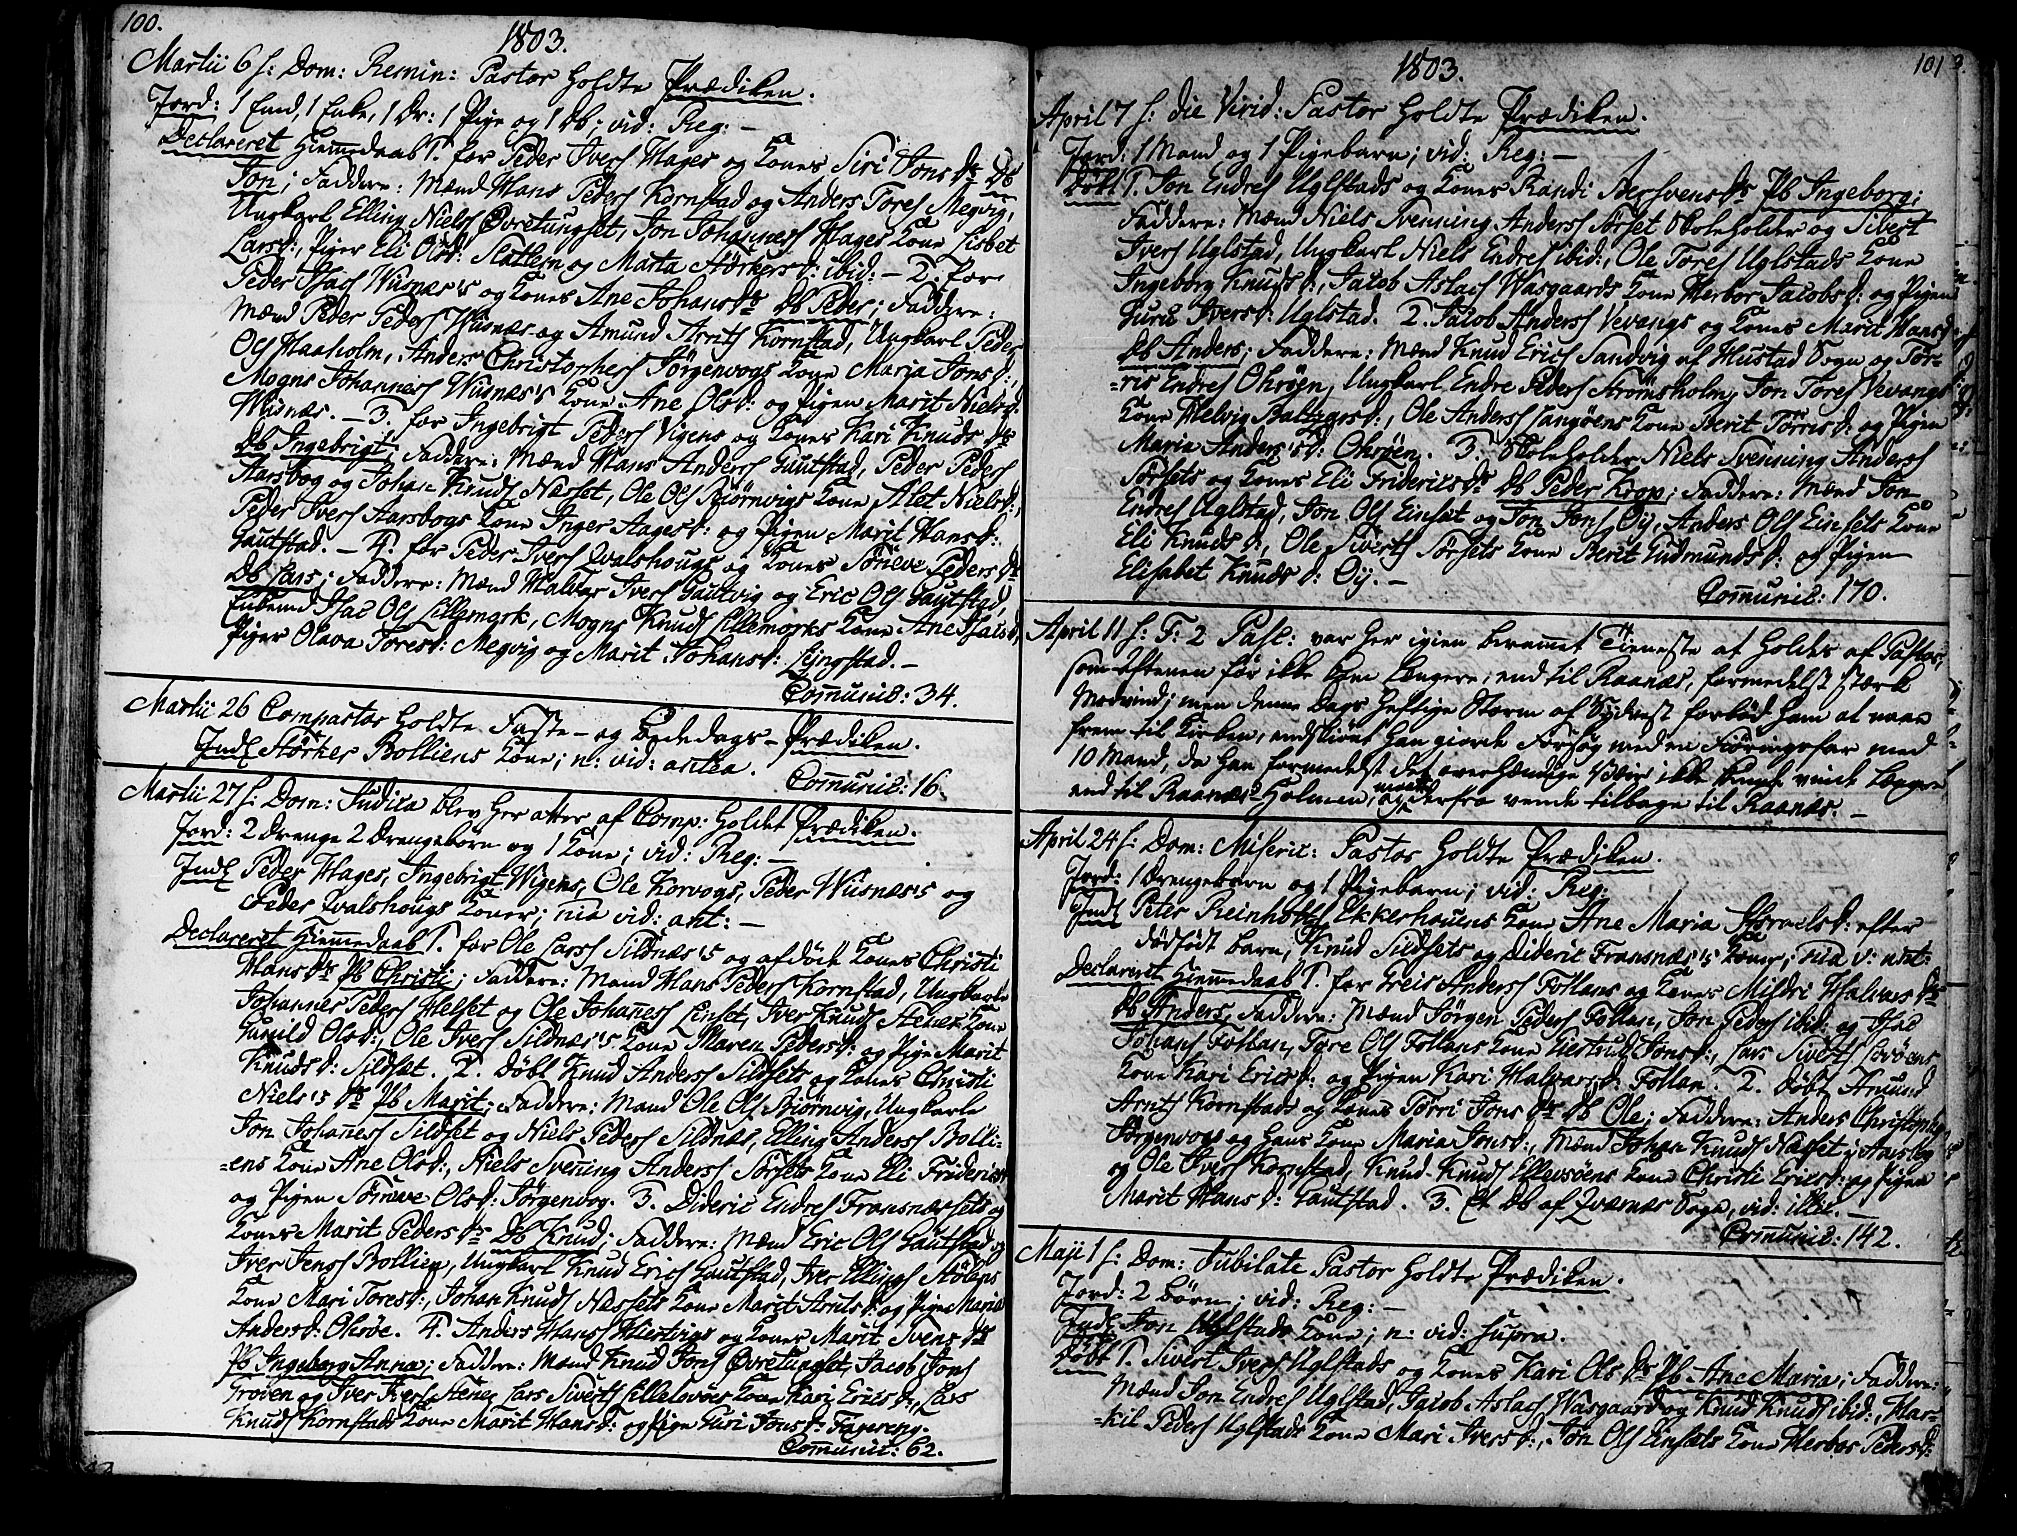 100.
1803.
Martii 6 s: Dom: Remin: Pastor holdte Prædiken.
Jord: 1 Emd, 1 Enke, 1 Dr: 1 Pige og 1 Db; vid: Reg: –
Declareret Hiemmedaab 1. for Peder Ivers Hages og Kones Siri Jons Dr Db
Jon; Faddere: Mænd Hans Peders Kornstad og Anders Tores Megvig,
Ungkarl Elling Niels Øvretungset, Jon Johannes Hages Kone Lisbet
Larsd:, Piger Eli Olsd: Slatlem og Marta Størkersd: ibid: – 2. for
Peder Isacs Wisnæs's og Kones Ane Johansdr Db Peder; Faddere:
Mænd Peder Peders Wisnæs og Amund Arnts Kornstad, Ungkarl Peder
Ols Maaholm, Anders Christophers Jørgenvogs Kone Maria Jonsd:,
Mogns Johannes Wisnæs's Kone Ane Olsd: og Pigen Marit Nielsd:
Wisnæs. – 3. for Ingebrigt Peders Vigens og Kones Kari Knuds Dr
Db Ingebrigt; Faddere: Mænd Hans Anders Gautstad, Peder Peders
Aarsbog og Johan Knuds Næsset, Ole Ols Biørnvigs Kone Alet Nielsd:,
Peder Ivers Aarsbogs Kone Inger Aagesd: og Pigen Marit Hansd:
Gautstad. – 4. for Peder Ivers Qvalshougs og Kones Søneve Peders Dr
Db Lars; Faddere: Mænd Halvar Ivers Gautvig og Eric Ols Gautstad,
Enkemd Isac Ols Lillemork, Mogns Knuds Lillemorks Kone Ane Isacsd:,
Piger Olava Toresd: Megvig og Marit Johansd: Lyngstad. –
Comunic: 34.
Martii 26 Compastor holdte Faste- og Bededags-Prædiken.
Indl Størker Bolliens Kone; n: vid: antea.
Comunic: 16.
Martii 27 s: Dom: Judica blev her atter af Comp: holdet Prædiken.
Jord: 2 Drenge 2 Drengebørn og 1 Kone; vid: Reg: –
Indl Peder Hages, Ingebrigt Wigens, Ole Korvogs, Peder Wisnæs's og
Peder Qvalshougs Koner; nia vid: ant: –
Declareret Hiemmedaab 1. for Ole Lars Sildnæs's og afdøde Kones Christi
Hans Dr Pb Christi; Faddere: Mænd Hans Peders Kornstad, Ungkarle
Johannes Peders Helset og Ole Johannes Linset, Iver Knuds Stenes Kone
Gunild Olsd:, Ole Ivers Sildnæs's Kone Maren Pedersd: og Pige Marit
Knudsd: Sildset. 2. Døbt Knud Anders Sildsets og Kones Christi
Niels's Dr Pb Marit; Faddere: Mænd Ole Ols Biørnvig, Ungkarle
Jon Johannes Sildset og Niels Peders Sildnæs, Elling Anders Bolli-
=ens Kone Ane Olsd:, Niels Svenning Anders Sørsets Kone Eli Fridericsd:
og Pigen Sønneve Olsd: Jørgenvog. 3. Dideric Endres Fransnæssets og
Kones Marit Peders Dr Db Knud; Faddere: Mænd Eric Ols Gautstad og
Iver Jens Bollien, Ungkarl Knud Erics Gautstad, Iver Ellings Stølens
Kone Mari Toresd:, Johan Knuds Næssets Kone Marit Arntsd: og Pige Maria
Andersd: Ohrøe. 4. Anders Hans Hiertvigs og Kones Marit Svens Dr
Pb Ingeborg Anna; Faddere: Mænd Knud Jons Øvretungset, Jacob Jons
Groven og Iver Ivers Stene, Lars Siverts Lilleløvøes Kone Kari Ericsd:, Lars
Knuds Kornstads Kone Marit Hansd: og Pige Guri Jonsd: Fagereng.
Comunic: 62.
101
1803.
April 7 s: die Virid: Pastor holdte Prædiken.
Jord: 1 Mand og 1 Pigebarn; vid: Reg: –
Døbt 1. Jon Endres Uglstads og Kones Randi Bersvensdr Pb Ingeborg;
Faddere: Mænd Niels Svenning Anders Sørset Skoleholder og Sivert
Ivers Uglstad, Ungkarl Niels Endres ibid:, Ole Tores Uglstads Kone
Ingeborg Knudsd:, Jacob Aslacs Wasgaards Kone Herbor Jacobsd: og Pigen
Guru Iversd: Uglstad. 2. Jacob Anders Vevangs og Kones Marit Hansd:
Db Anders; Faddere: Mænd Knud Erics Sandvig af Hustad Sogn og Tør-
=ris Endres Ohrøyn, Ungkarl Endre Peders Strømsholm, Jon Tores Vevangs
Kone Helvig Baltzersd:, Ole Anders Langøens Kone Berit Tørrisd: og Pigen
Maria Anders's d: Ohrøen. 3. Skoleholder Niels Svenning Anders
Sørsets og Kones Eli Fridericsdr Db Peder Krop; Faddere: Mænd Jon
Endres Uglstad, Jon Ols Einset og Jon Jons Øy, Anders Ols Einsets Kone
Eli Knudsd:, Ole Siverts Sørsets Kone Berit Gudmundsd: og Pigen
Elisabet Knudsd: Øy. –
Comunic: 170.
April 11 s: F: 2 Pasc: var her igien berammet Tieneste at holdes af Pastor,
som Aftenen før ikke kom længere, end til Raanæs, formedelst stærk
Modvind; men denne Dags heftige Storm af Sydvest forbød ham at naae
frem til Kirken, endskiønt han giorde Forsøg med en Fiøringsfar med
10 Mand, da han formedelst det overhændige Veir ikke kunde vinde længere
end til Raanæs-Holmen, og maatte derfra vende tilbage til Raanæs. –
April 24 s: Dom: Miseric: Pastor holdte Prædiken.
Jord: 1 Drengebarn og 1 Pigebarn; vid: Reg:
Indl Peter Reinholts Ekkerhauens Kone Ane Maria Israelsd: efter
dødfødt Barn, Knud Sildsets og Diderit Fransnæs's Koner; nia v: ant:
Declareret Hiemmedaab 1. for Greis Anders Follans og Kones Mildri Halvors Dr
Db Anders; Faddere: Mænd Jørgen Peders Follan, Jon Peders ibid: og Isac
Johans Follan, Tore Ols Follans Kone Giertrud Jonsd:, Lars Siverts Løvøens
Kone Kari Ericsd: og Pigen Kari Halvarsd: Follan. 2. Døbt Amund
Arnts Kornstads og Kones Tørri Jons Dr Db Ole; Faddere: Anders Christophers
Jørgenvogs og hans Kone Maria Jonsd:, Mænd Johan Knuds Næsset i Aarsbog
og Ole Ivers Kornstad, Knud Knuds Ellevsøens Kone Christi Ericsd: og Pigen
Marit Hansd: Gautstad. 3. Et Db af Qværnæs Sogn, vid: illic. –
Comunic: 142.
Maji 1 s: Dom: Jubilate Pastor holdte Prædiken.
Jord: 2 Børn; vid: Reg: –
Indl: Jon Uglstads Kone; n: vid: supra.
Døbt 1. Sivert Ivers Uglstads og Kones Kari Ols Dr Pb Ane Maria; Faddere:
Mænd Jon Endres Uglstad, Jacob Aslacs Wasgaard og Knud Knuds ibid:, Har-
=kil Peders Uglstads Kone Mari Iversd:, Jon Ols Einsets Kone Herbor Pedersd: